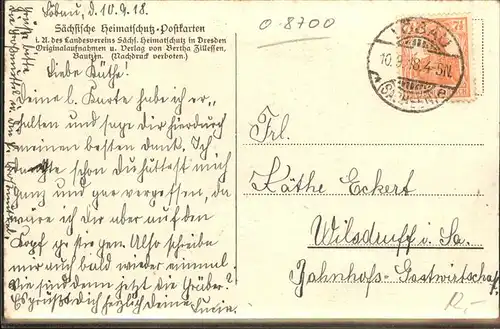 Löbau, d. 10.9.18.
0-8700
Sächsische Heimatschutz-Postkarten
i. A. des Landesvereins Sächs. Heimatschutz in Dresden
Originalaufnahmen u. Verlag von Bertha Zillessen.
Bautzen. (Nachdruck verboten.)
Liebe Käthe!
Deine l. Karte habe ich er-
halten und sage dir hierdurch
meinen besten Dank. Ich
dachte schon Du hättest mich
ganz und gar vergessen, da
wäre ich Dir aber auf den
Kopf gestiegen. Also schreibe
mir auch bald wieder einmal.
Wie sind denn jetzt die
Es grüßt Dich herzlich deine Lucie.
LÖBAU
10.9.18.4-5N.
(SACHSEN)
7½
Frl.
Käthe Eckert
Wilsdruff i. Sa.
Bahnhofs-Gastwirtschaft
12,-